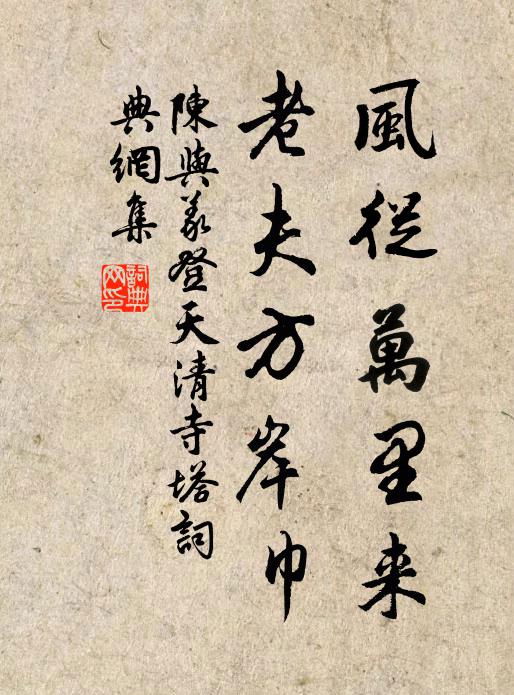 風從萬里来
老夫方岸巾
陳與義登天清寺塔詞
典網集
詞典網印